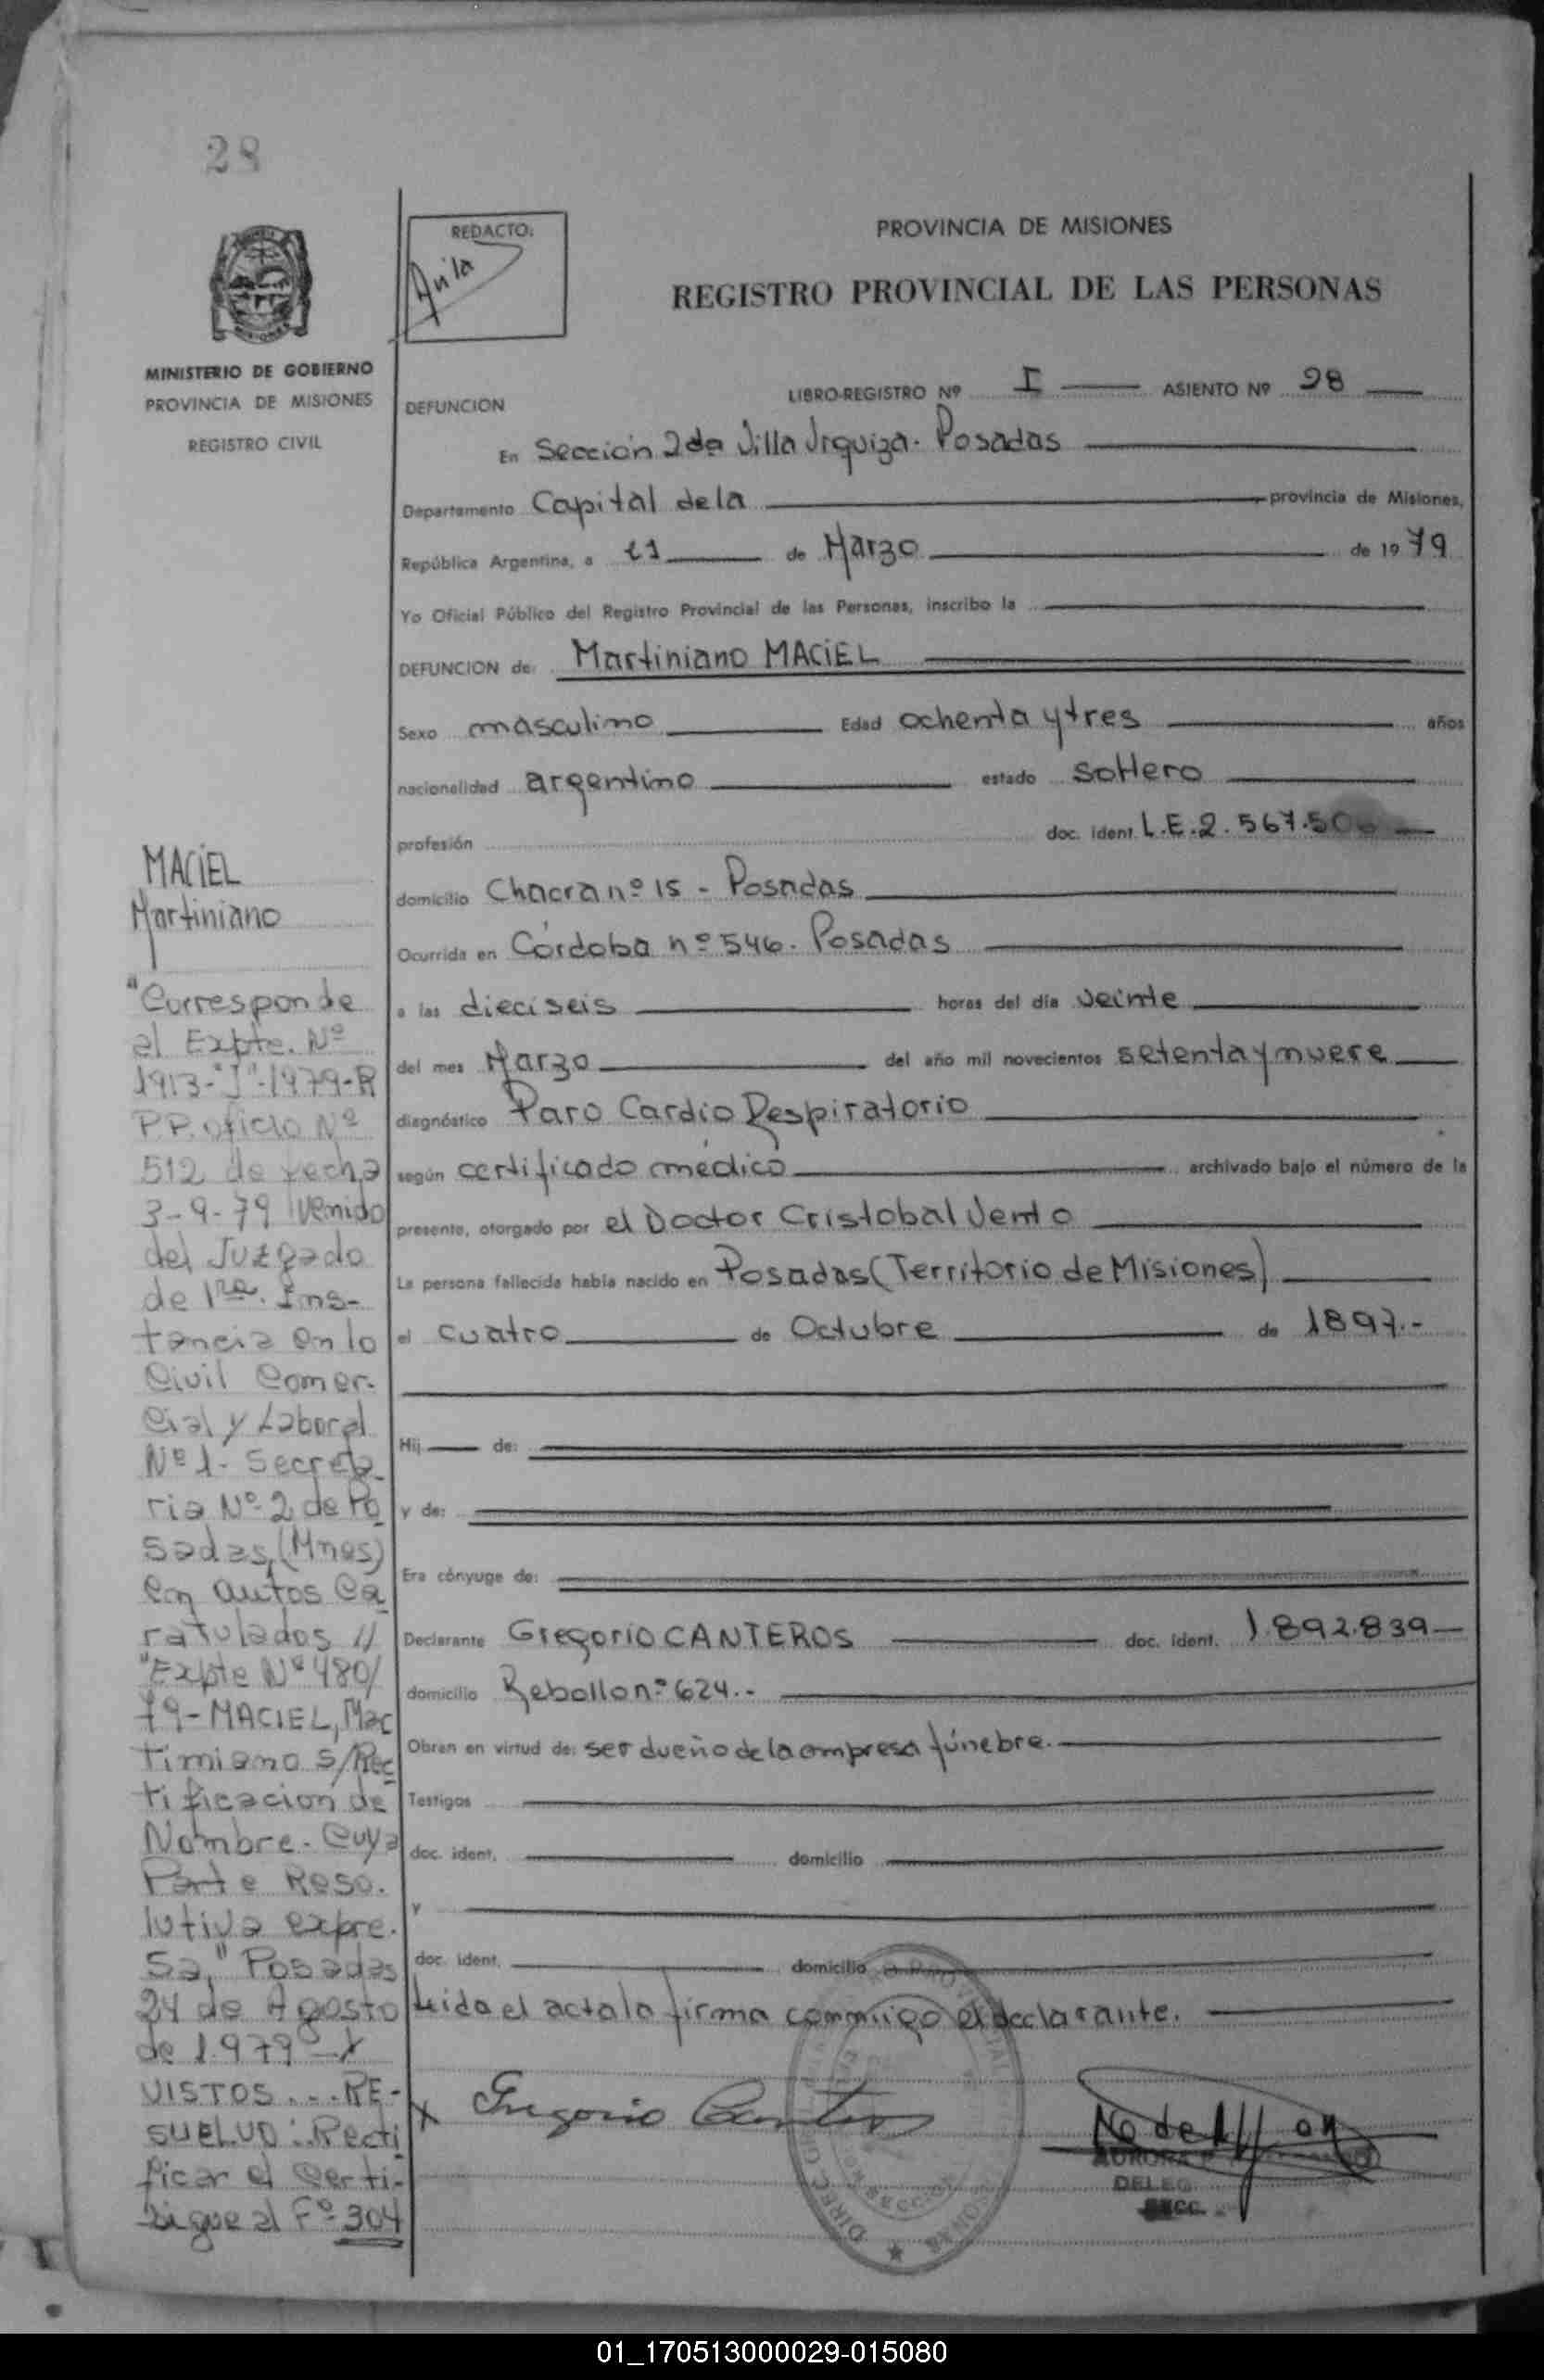 28
REDACTO:
Avila
PROVINCIA DE MISIONES
REGISTRO PROVINCIAL DE LAS PERSONAS
MINISTERIO DE GOBIERNO
PROVINCIA DE MISIONES
REGISTRO CIVIL
DEFUNCION
LIBRO-REGISTRO Nº I ASIENTO Nº 28
En Sección 2da Villa Urquiza. Posadas
Departamento Capital de la provincia de Misiones,
República Argentina, a 21 de Marzo de 1979
Yo Oficial Público del Registro Provincial de las Personas, inscribo la
DEFUNCION de: Martiniano MACIEL
Sexo masculino Edad ochenta y tres años
nacionalidad argentino estado soltero
profesión doc. ident. L.E.2.567.50
domicilio Chacra nº 15 - Posadas
Ocurrida en Córdoba nº 546. Posadas
a las dieciseis horas del día veinte
del mes Marzo del año mil novecientos setenta y nueve
diagnóstico Paro Cardio Respiratorio
según certificado médico archivado bajo el número de la
presente, otorgado por el Doctor Cristobal Vento
La persona fallecida había nacido en Posadas (Territorio de Misiones)
el cuatro de Octubre de 1897.-
Hij de:
y de:
Era cónyuge de:
Declarante Gregorio CANTEROS doc. ident. 1.892.839
domicilio Rebollo nº 624.-
Obran en virtud de: ser dueño de la empresa fúnebre.
Testigos
doc. ident. domicilio
y
doc. ident. domicilio
Leida el acta la firma conmigo el declarante.
Gregorio Canteros
AURORA
DELEG
SECC.
MACIEL
Martiniano
"Corresponde
al Expte. Nº
1913-"J"-1979-R
PP. oficio Nº
512 de fecha
3-9-79 venido
del Juzgado
de 1ra. Ins-
tancia en lo
Civil Comer-
cial y Laboral
Nº 1 - Secreta
ria Nº 2 de Po
sadas, (Mnes)
en autos Ca
ratulados //
"Expte Nº 480/
79-MACIEL, Mar
timiano S/Rec
tificacion de
Nombre. Cuya
Parte Reso.
lutiva expre.
sa," Posadas
24 de Agosto
de 1979
VISTOS...RE-
SUELVO: Recti
ficar el Certi-
Sigue al Fº 304
01_170513000029-015080